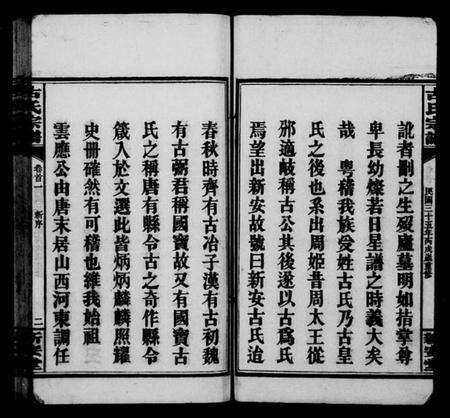 訛者刪之生歿廬墓明如指掌尊
卑長幼燦若日星譜之時義大矣
哉　粤稽我族爰姓古氏乃古皇
氏之後也系出周姬昔周太王從
邠適岐稱古公其後遂以古為氏
焉望出新安故號曰新安古氏迨
民國三十五年丙戌歲重修
古氏宗譜
卷首一
新序
二
春秋時齊有古冶子漢有古初魏
有古弼君稱國寶故又有國寶古
氏之稱唐有縣令古之奇作縣令
箴入於文選此皆炳炳麟麟照耀
史冊確然有可稽也維我始祖
雲應公由唐末居山西河東調任